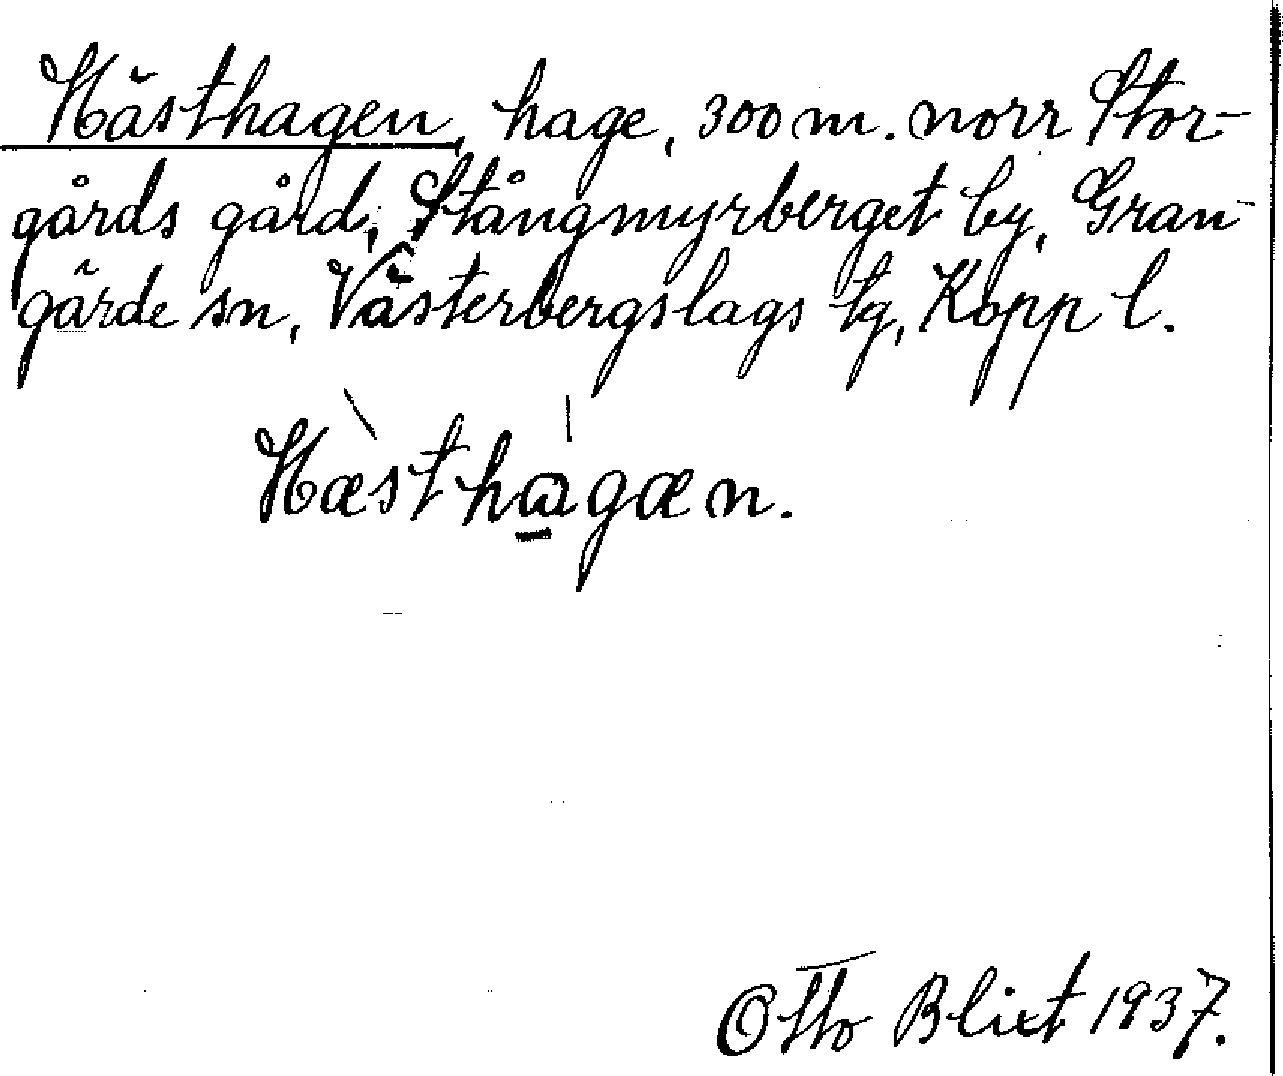 Hästhagen, hage, 300 m. norr Stor-
gårds gård, Stångmyrberget by, Gran-
gärde sn, Västerbergslags tg, Kopp l.
Hæsthagæn.
Otto Blixt 1937.